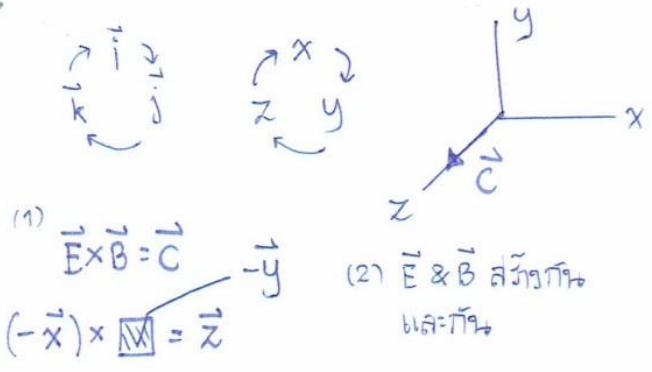 i⃗
k⃗ j⃗
x
z y
y
x
z
C⃗
(1)
E⃗×B⃗=C⃗
-y⃗
(-x⃗)× = z⃗
(2) E⃗ & B⃗ สร้างกัน
และกัน